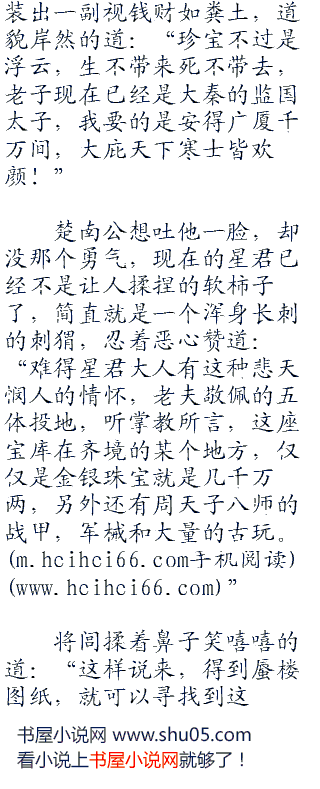 装出一副视钱财如粪土，道
貌岸然的道：“珍宝不过是
浮云，生不带来死不带去，
老子现在已经是大秦的监国
太子，我要的是安得广厦千
万间，大庇天下寒士皆欢
颜！”
楚南公想吐他一脸，却
没那个勇气，现在的星君已
经不是让人揉捏的软柿子
了，简直就是一个浑身长刺
的刺猬，忍着恶心赞道：
“难得星君大人有这种悲天
悯人的情怀，老夫敬佩的五
体投地，听掌教所言，这座
宝库在齐境的某个地方，仅
仅是金银珠宝就是几千万
两，另外还有周天子八师的
战甲，军械和大量的古玩。
(m.hcihci66.com手机阅读)
(www.hcihci66.com)”
将闾揉着鼻子笑嘻嘻的
道：“这样说来，得到蜃楼
图纸，就可以寻找到这
书屋小说网 www.shu05.com
看小说上书屋小说网就够了！